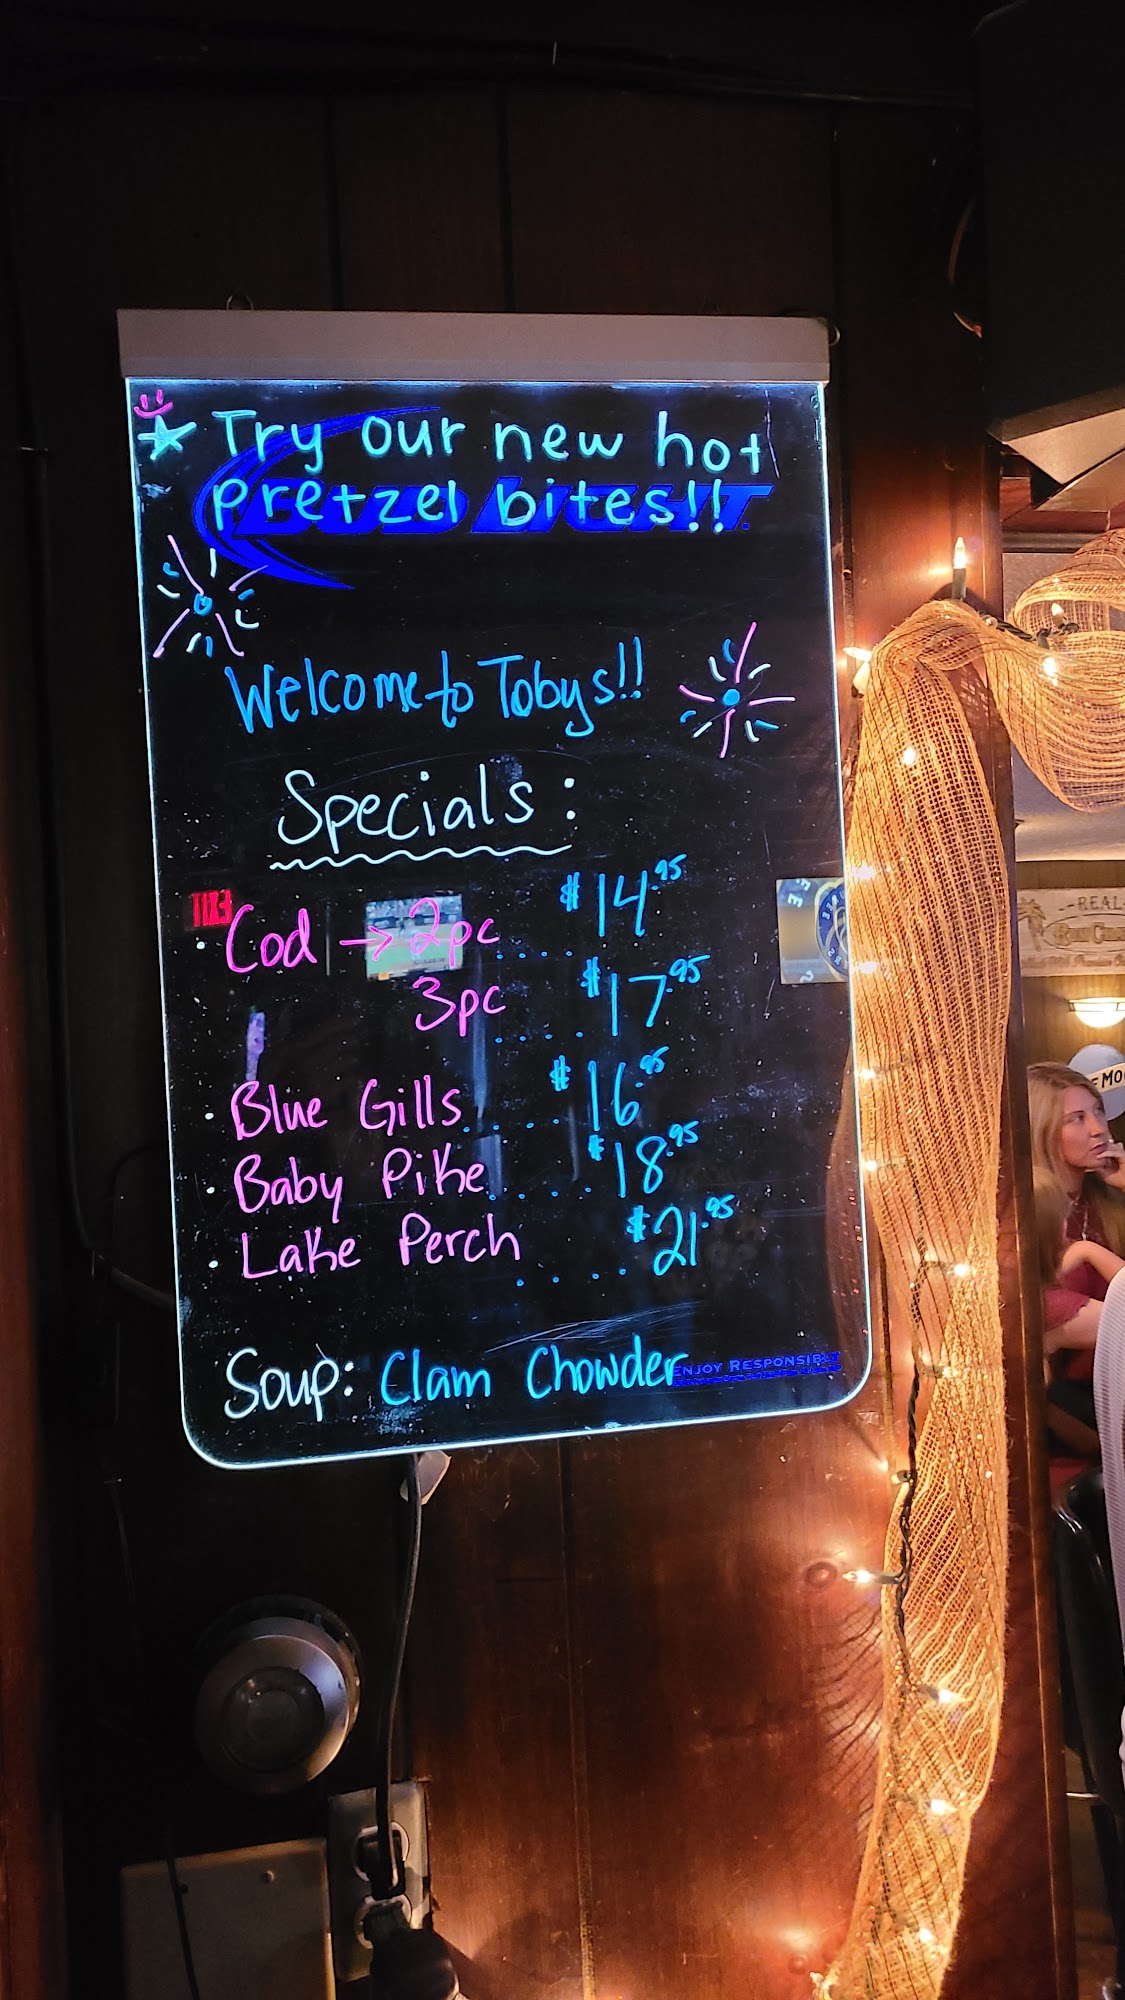 Try our new hot
pretzel bites!!
Welcome to Tobys!!
Specials:
EXIT
· Cod → 2pc .... $14.95
3pc .... $17.95
· Blue Gills ..... $16.95
· Baby Pike ..... $18.95
· Lake Perch .... $21.95
Soup: Clam Chowder
ENJOY RESPONSIBLY
REAL
MOO